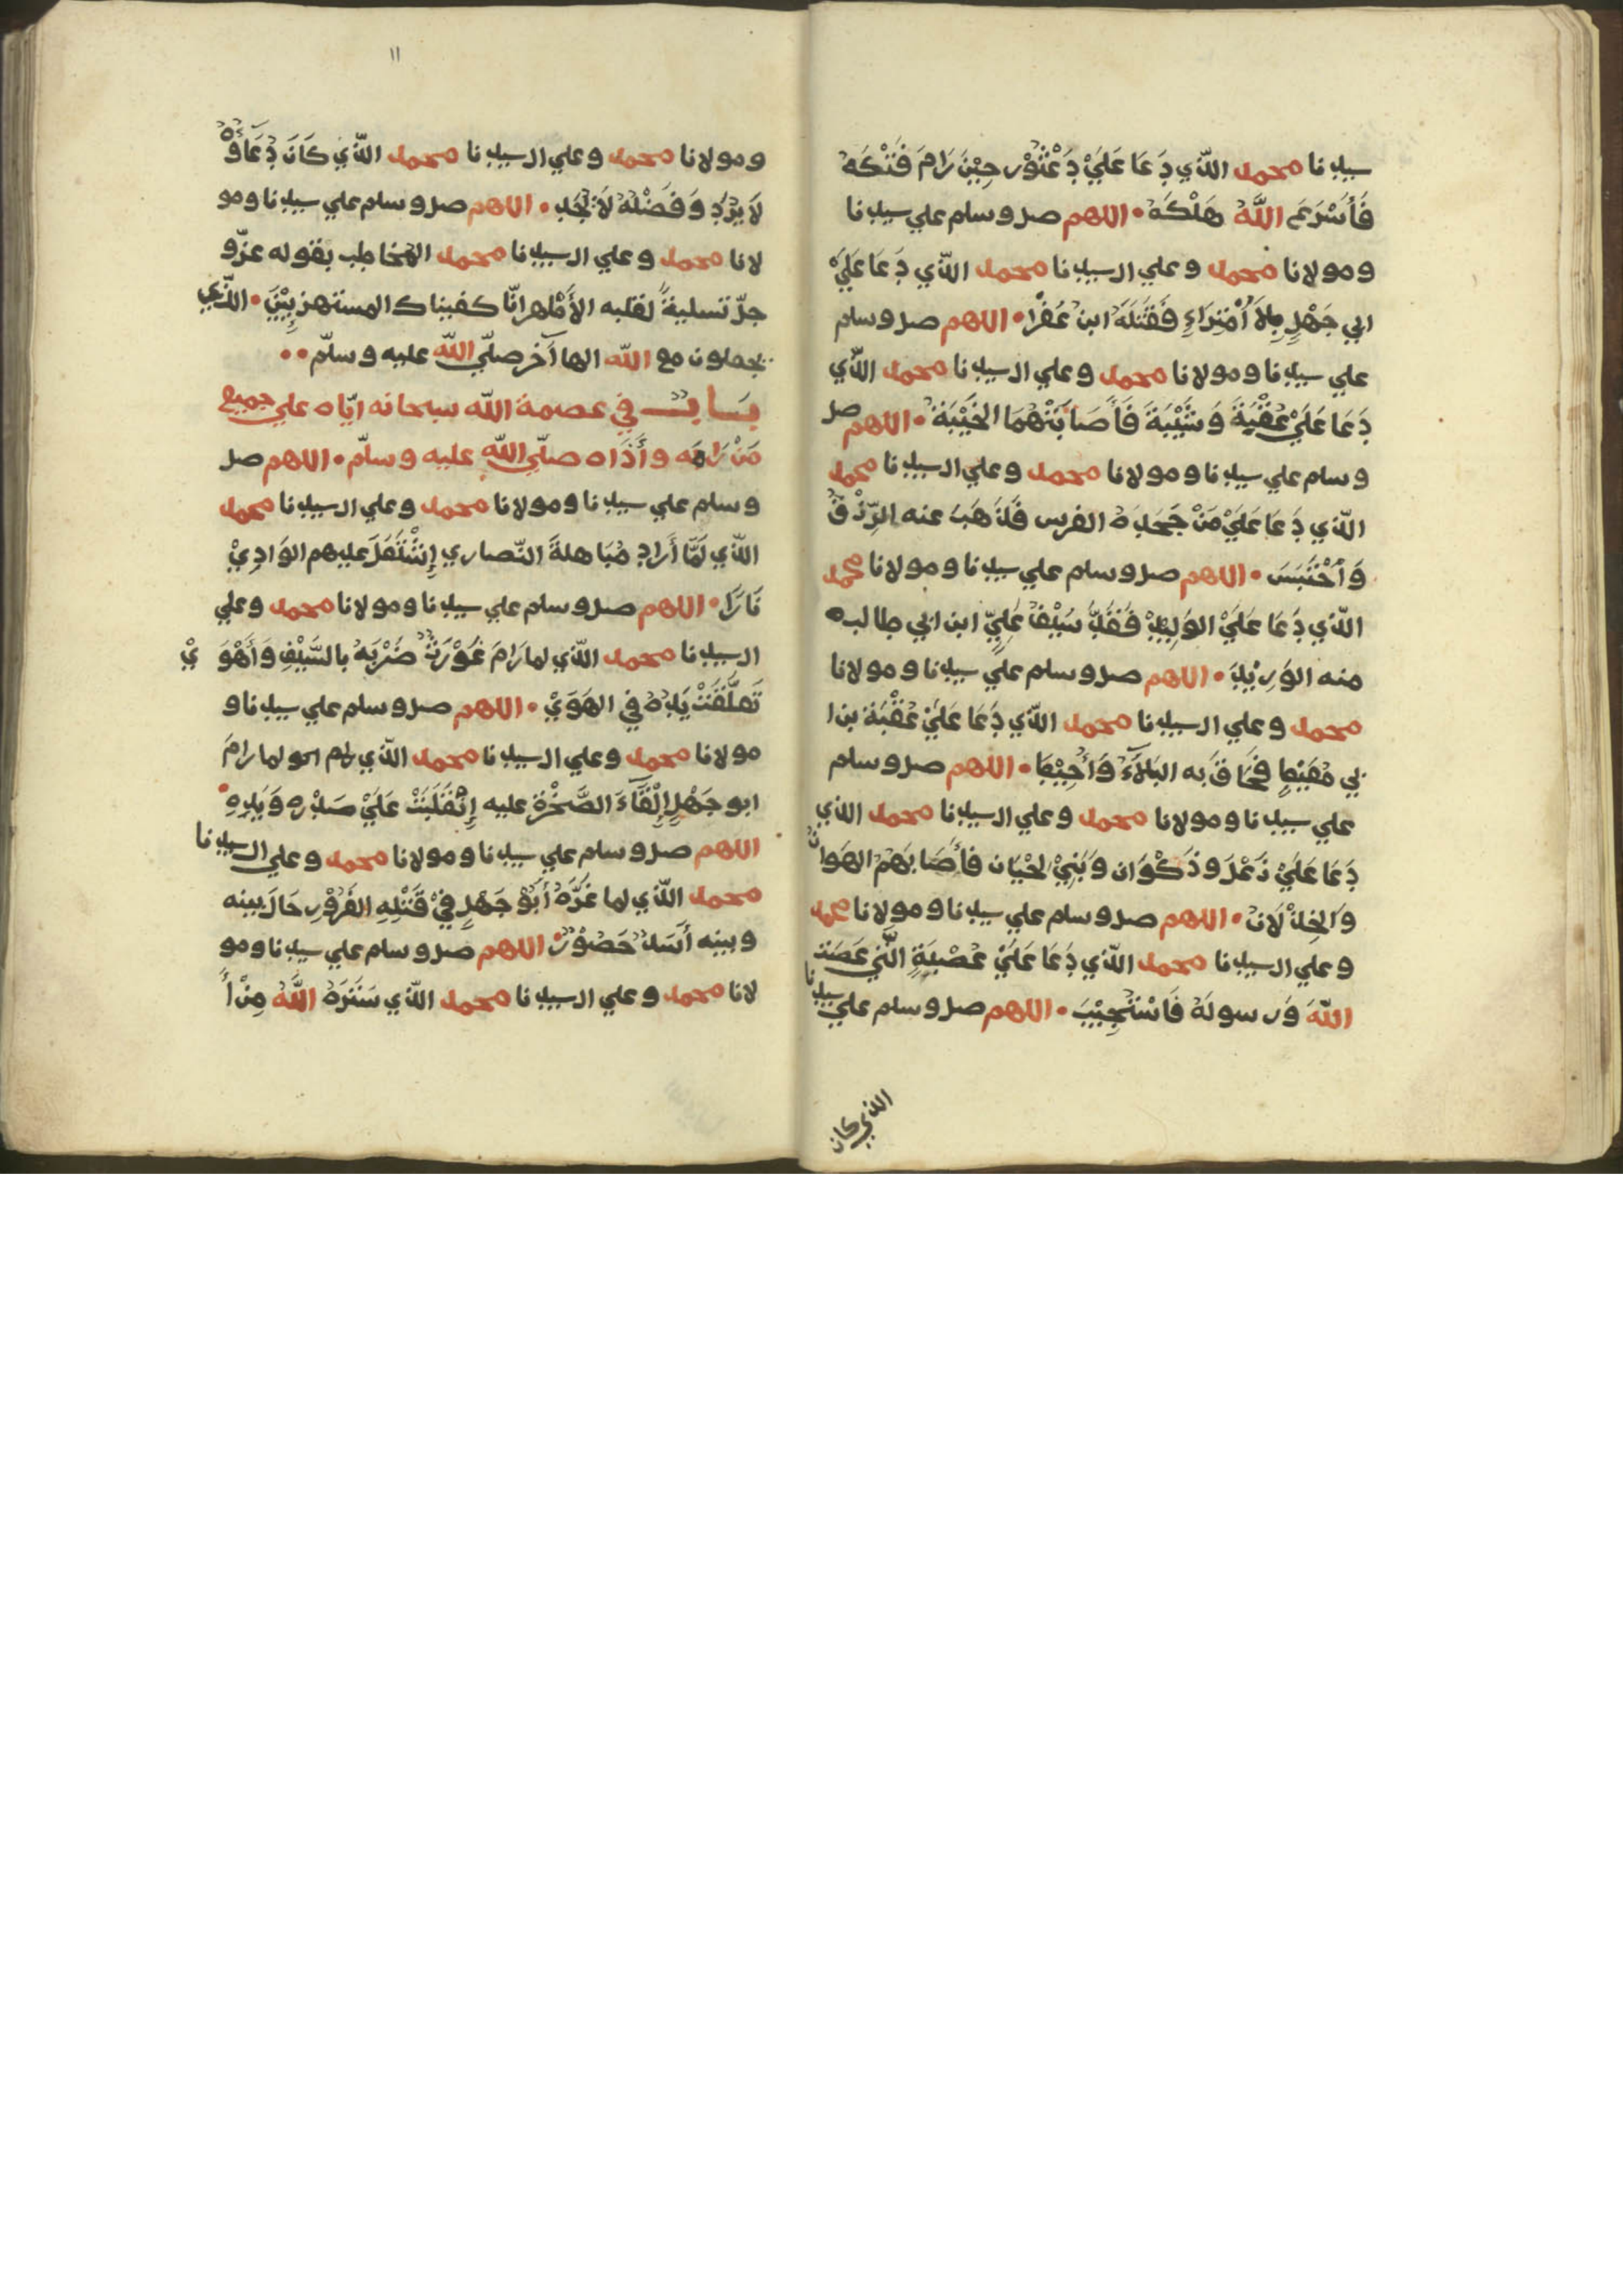 سيدنا محمد الذي دَعَا عَلَيْ دَعْثُوْر حِيْنَ رَامَ فَتْكَهُ
فَأَسْرَعَ اللَّهُ هَلْكَهُ • اللهم صل وسلم علي سيدنا
ومولانا محمد وعلي ال سيدنا محمد الذي دَعَا عَلَيْ
ابي جَهْلٍ بِلاَ أمْتِرَاءٍ فَقَتَلَهُ ابن عُفْرَا • اللهم صل وسلم
علي سيدنا ومولانا محمد وعلي ال سيدنا محمد الّذي
دَعَا عَلَيْ عُقْبَةَ وَشَيْبَةَ فَأَصَابَتْهُمَا الخَيْبَةُ • اللهم صل
وسلم علي سيدنا ومولانا محمد وعلي ال سيدنا محمد
الّذي دَعَا عَلَيْ مَنْ جَحَدَهُ الفرس فَذَهَبَ عنه الرِّزْقُ
وَأحْتَبَسَ • اللهم صل وسلم علي سيدنا ومولانا محمد
الّذي دَعَا عَلَيْ الوَلِيْدِ فَقَدَّ سَيْفُ عَلِيِّ ابن ابي طالب
منه الوَرِيْدَ • اللهم صل وسلم علي سيدنا ومولانا
محمد وعلي ال سيدنا محمد الّذي دَعَا عَلَيْ عُقْبَة بن ا
بي مُعَيْطٍ فَحَاقَ به البَلاَءُ وَأُحِيْطَ • اللهم صل وسلم
علي سيدنا ومولانا محمد وعلي ال سيدنا محمد الذي
دَعَا عَلَيْ رَعْلَ وذَكْوَان وَبَنِيْ لحْيَان فأَصَابَهُمُ الهَوانُ
وَالخِذْلَانُ • اللهم صل وسلم علي سيدنا ومولانا محمد
وعلي ال سيدنا محمد الّذي دَعَا عَلَيْ عُصْبَةٍ الَّتي عَصَت
اللّهَ وَرسولَهُ فَاسْتُجِيْبَ • اللهم صل وسلم علي سيدنا
الذي كان
١١
ومولانا محمد وعلي ال سيدنا محمد الّذي كَانَ دُعَاؤُهُ
لَا يُرَدُ وَفَضْلُهُ لَا يُجْحَد • اللهم صل وسلم علي سيدنا ومو
لانا محمد وعلي ال سيدنا محمد المخاطب بقوله عزّو
جلّ تسليةً لقلبه الأَطْهر انّا كفيناك المستهزِئِيْنَ • الّذين
يجعلون مع اللّه الها آخر صلّي اللّه عليه وسلّم ••
بَابٌ في عصمة اللّه سبحانه ايّاه علي جميع
مَنْ رَامَه وأَذَاه صلّي اللّه عليه وسلّم • اللهم صل
وسلم علي سيدنا ومولانا محمد وعلي ال سيدنا محمد
الّذي لَمَّا أَرَاد مُبَاهلةَ النّصاري إِشْتَعَلَ عليهم الوَادِيْ
نَارَا • اللهم صل وسلم علي سيدنا ومولانا محمد وعلي
ال سيدنا محمد الّذي لما رَامَ غَوْرَثُ ضَرْبَهُ بالسَّيْفِ وَأَهْوَيْ
تَعلَّقَتْ يَدُهُ في الهَوَيْ • اللهم صل وسلم علي سيدنا و
مولانا محمد وعلي ال سيدنا محمد الّذي لما رامَ
ابو جَهْلٍ إلْقَآءَ الصَّخْرَةِ عليه إِنْقَلَبَتْ عَلَيْ صَدْرِهِ وَيَدِهِ •
اللهم صل وسلم علي سيدنا ومولانا محمد وعلي ال سيدنا
محمد الّذي لما غَرَّهُ أَبُوْ جَهْلٍ فِيْ قَتْلِهِ الغَرُوْرِ حَالَ بينه
وبينه أَسَدٌ حَصُوْرٌ • اللهم صل وسلم علي سيدنا ومو
لانا محمد وعلي ال سيدنا محمد الّذي سَتَرَهُ اللّهُ مِنْ أُ